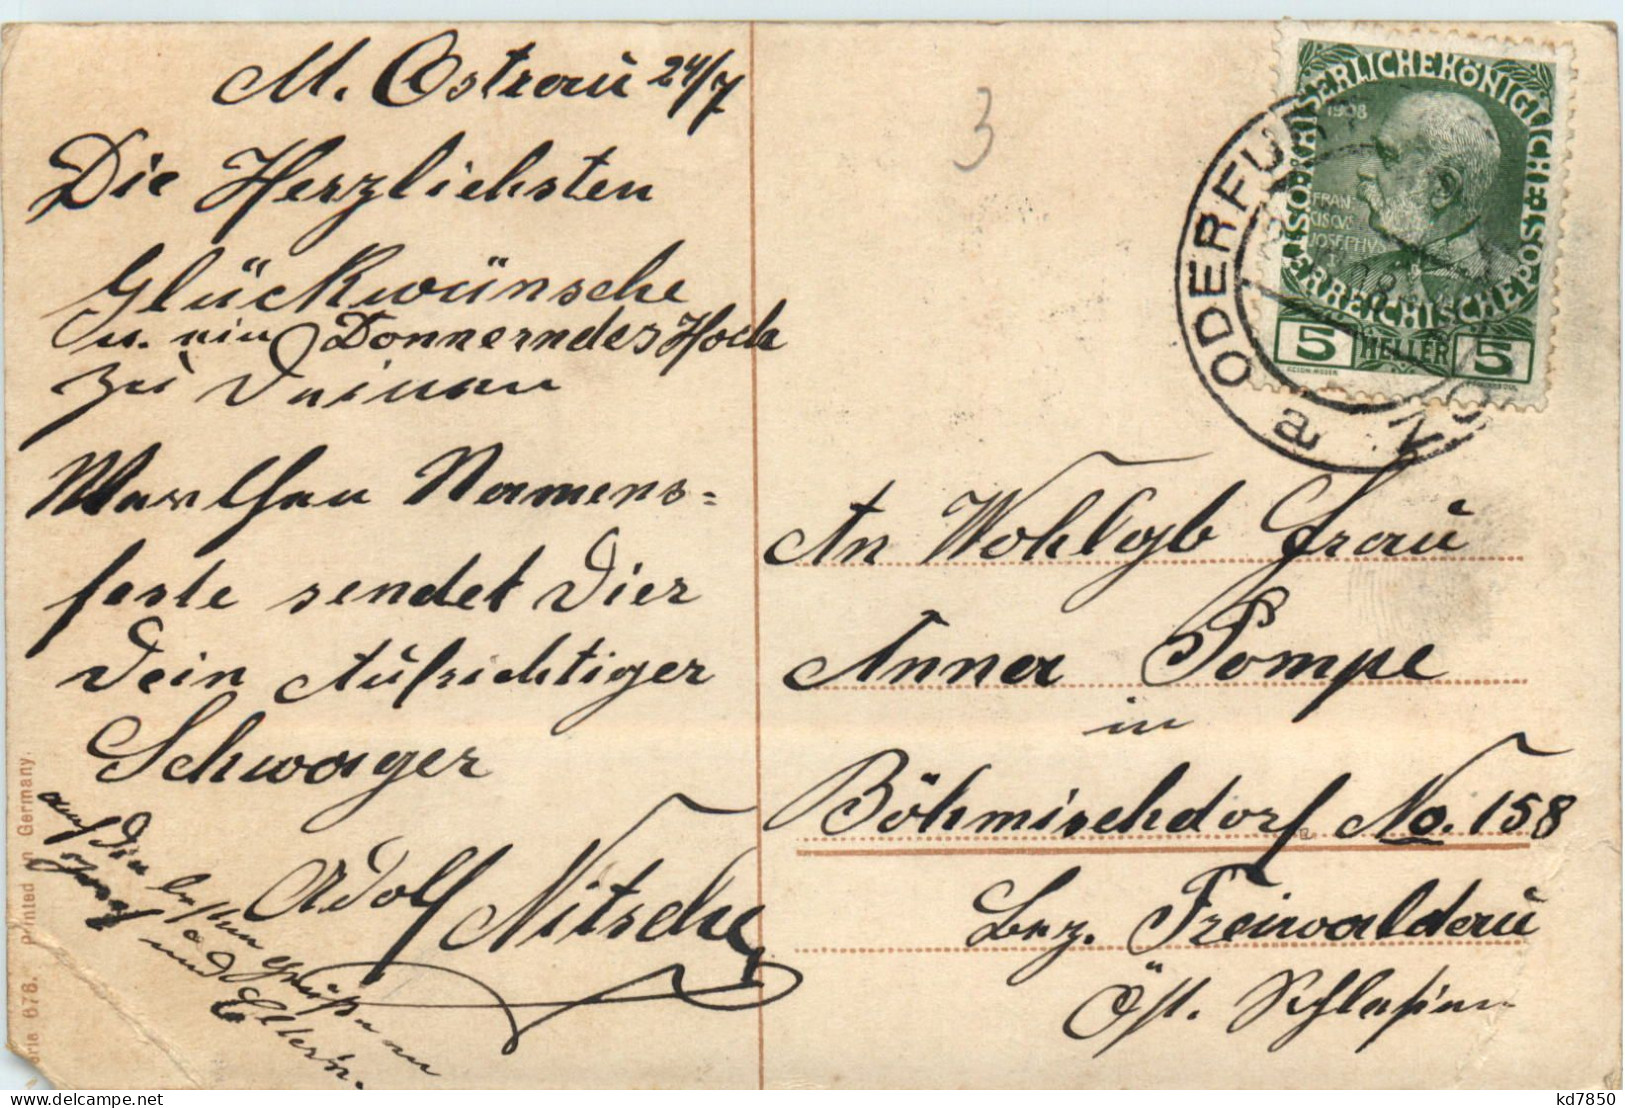 M. Ostrau 24/7
Die Herzlichsten
Glückwünsche
u. ein Donnerndes Hoch
zu Deinen
Werthen Namens=
feste sendet Dier
Dein Aufrichtiger
Schwager
Adolf Nitsche
auf die
Grüße an
und Eltern.
3
KAISERLICHEKÖNIGLICHE
ÖSTERREICHISCHEPOST
1908
FRAN
CISCVS
JOSEPHVS
I
5 HELLER 5
ODERFU
a
An Wohlgb Frau
Anna Pompe
in
Böhmischdorf No. 158
Bez. Freiwaldau
Öst. Schlesien
erie 678. Printed in Germany.
akpool.de
kd7850